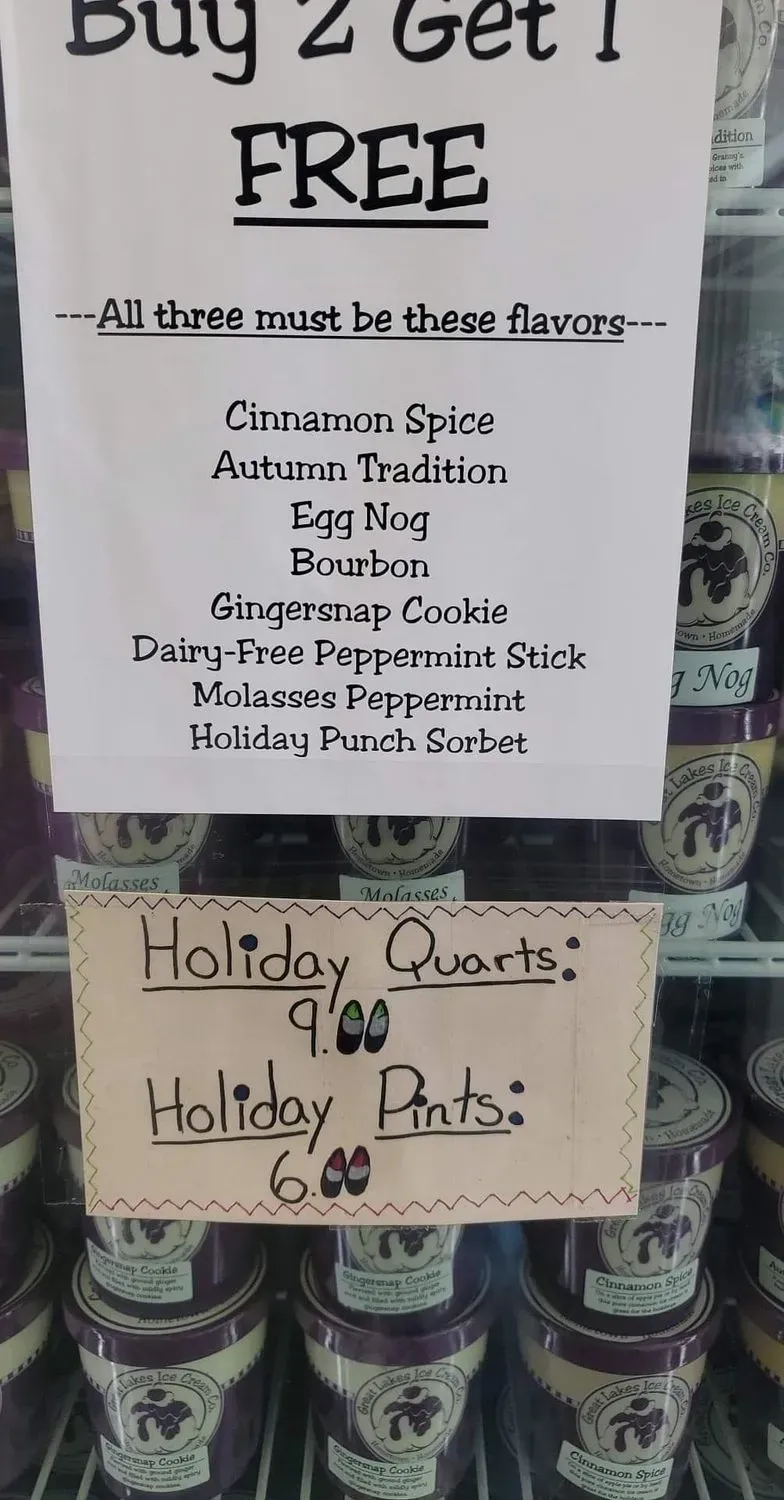 Buy 2 Get 1
FREE
---All three must be these flavors---
Cinnamon Spice
Autumn Tradition
Egg Nog
Bourbon
Gingersnap Cookie
Dairy-Free Peppermint Stick
Molasses Peppermint
Holiday Punch Sorbet
Holiday Quarts:
9.00
Holiday Pints:
6.00
Molasses
Molasses
Nog
Lakes Ice Cream Co.
Nog
Gingersnap Cookie
Gingersnap Cookie
Cinnamon Spice
Great Lakes Ice Cream Co.
Gingersnap Cookie
Great Lakes Ice Cream Co.
Gingersnap Cookie
Great Lakes Ice Cream Co.
Cinnamon Spice